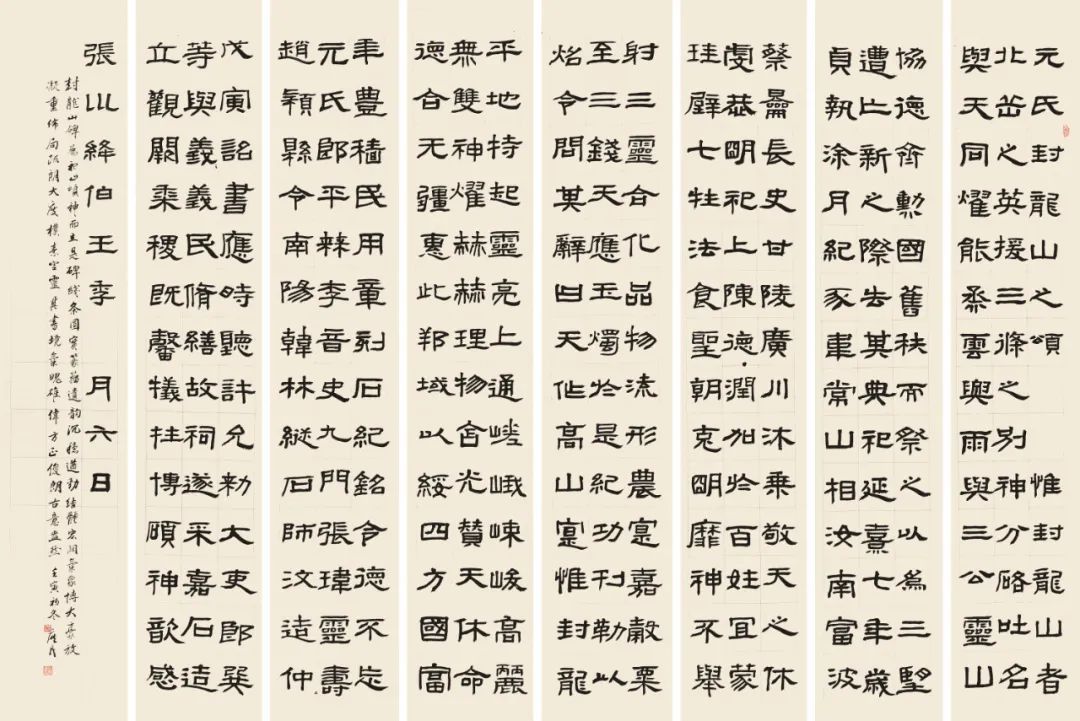 元氏封龍山之頌 惟封龍山者
北岳之英援三條之別神分硌吐名
與天同燿能烝雲與雨與三公靈山
協德齊勳國舊秩而祭之以為三望
遭亡新之際去其典祀延熹七年歲
貞執涂月紀豕韋常山相汝南富波
蔡曧長史甘陵廣川沐乘敬天之休
虔恭明祀上陳德潤加於百姓宜蒙
珪璧七牲法食聖朝克明靡神不舉
射三靈合化品物流形農寔嘉穀粟
至三錢天應玉燭於是紀功刊勒以
炤令問其辭曰天作高山寔惟封龍
平地特起靈亮上通嵯峨崠峻高麗
無雙神燿赫赫理物含光贊天休命
德合无疆惠此邦域以綏四方國富
年豐穡民用章刻石紀銘令德不忘
元氏郎平棘李音史九門張瑋靈壽
趙穎縣令南陽韓林綖石師汶造仲
戊寅詔書應時聽許允勑大吏郎巽
等與義義民脩繕故祠遂采嘉石造
立觀闕黍稷既馨犧牲博碩神歆感
張山絳伯王季 月六日
封龍山碑為祀山頌神而立是碑綫條圓實篆籀遺韵沉穩遒勁結體宏闊氣象博大豪放
凝重佈局疏朗大度樸素空靈其書境氣魄雄偉方正俊朗古意盎然壬寅初冬